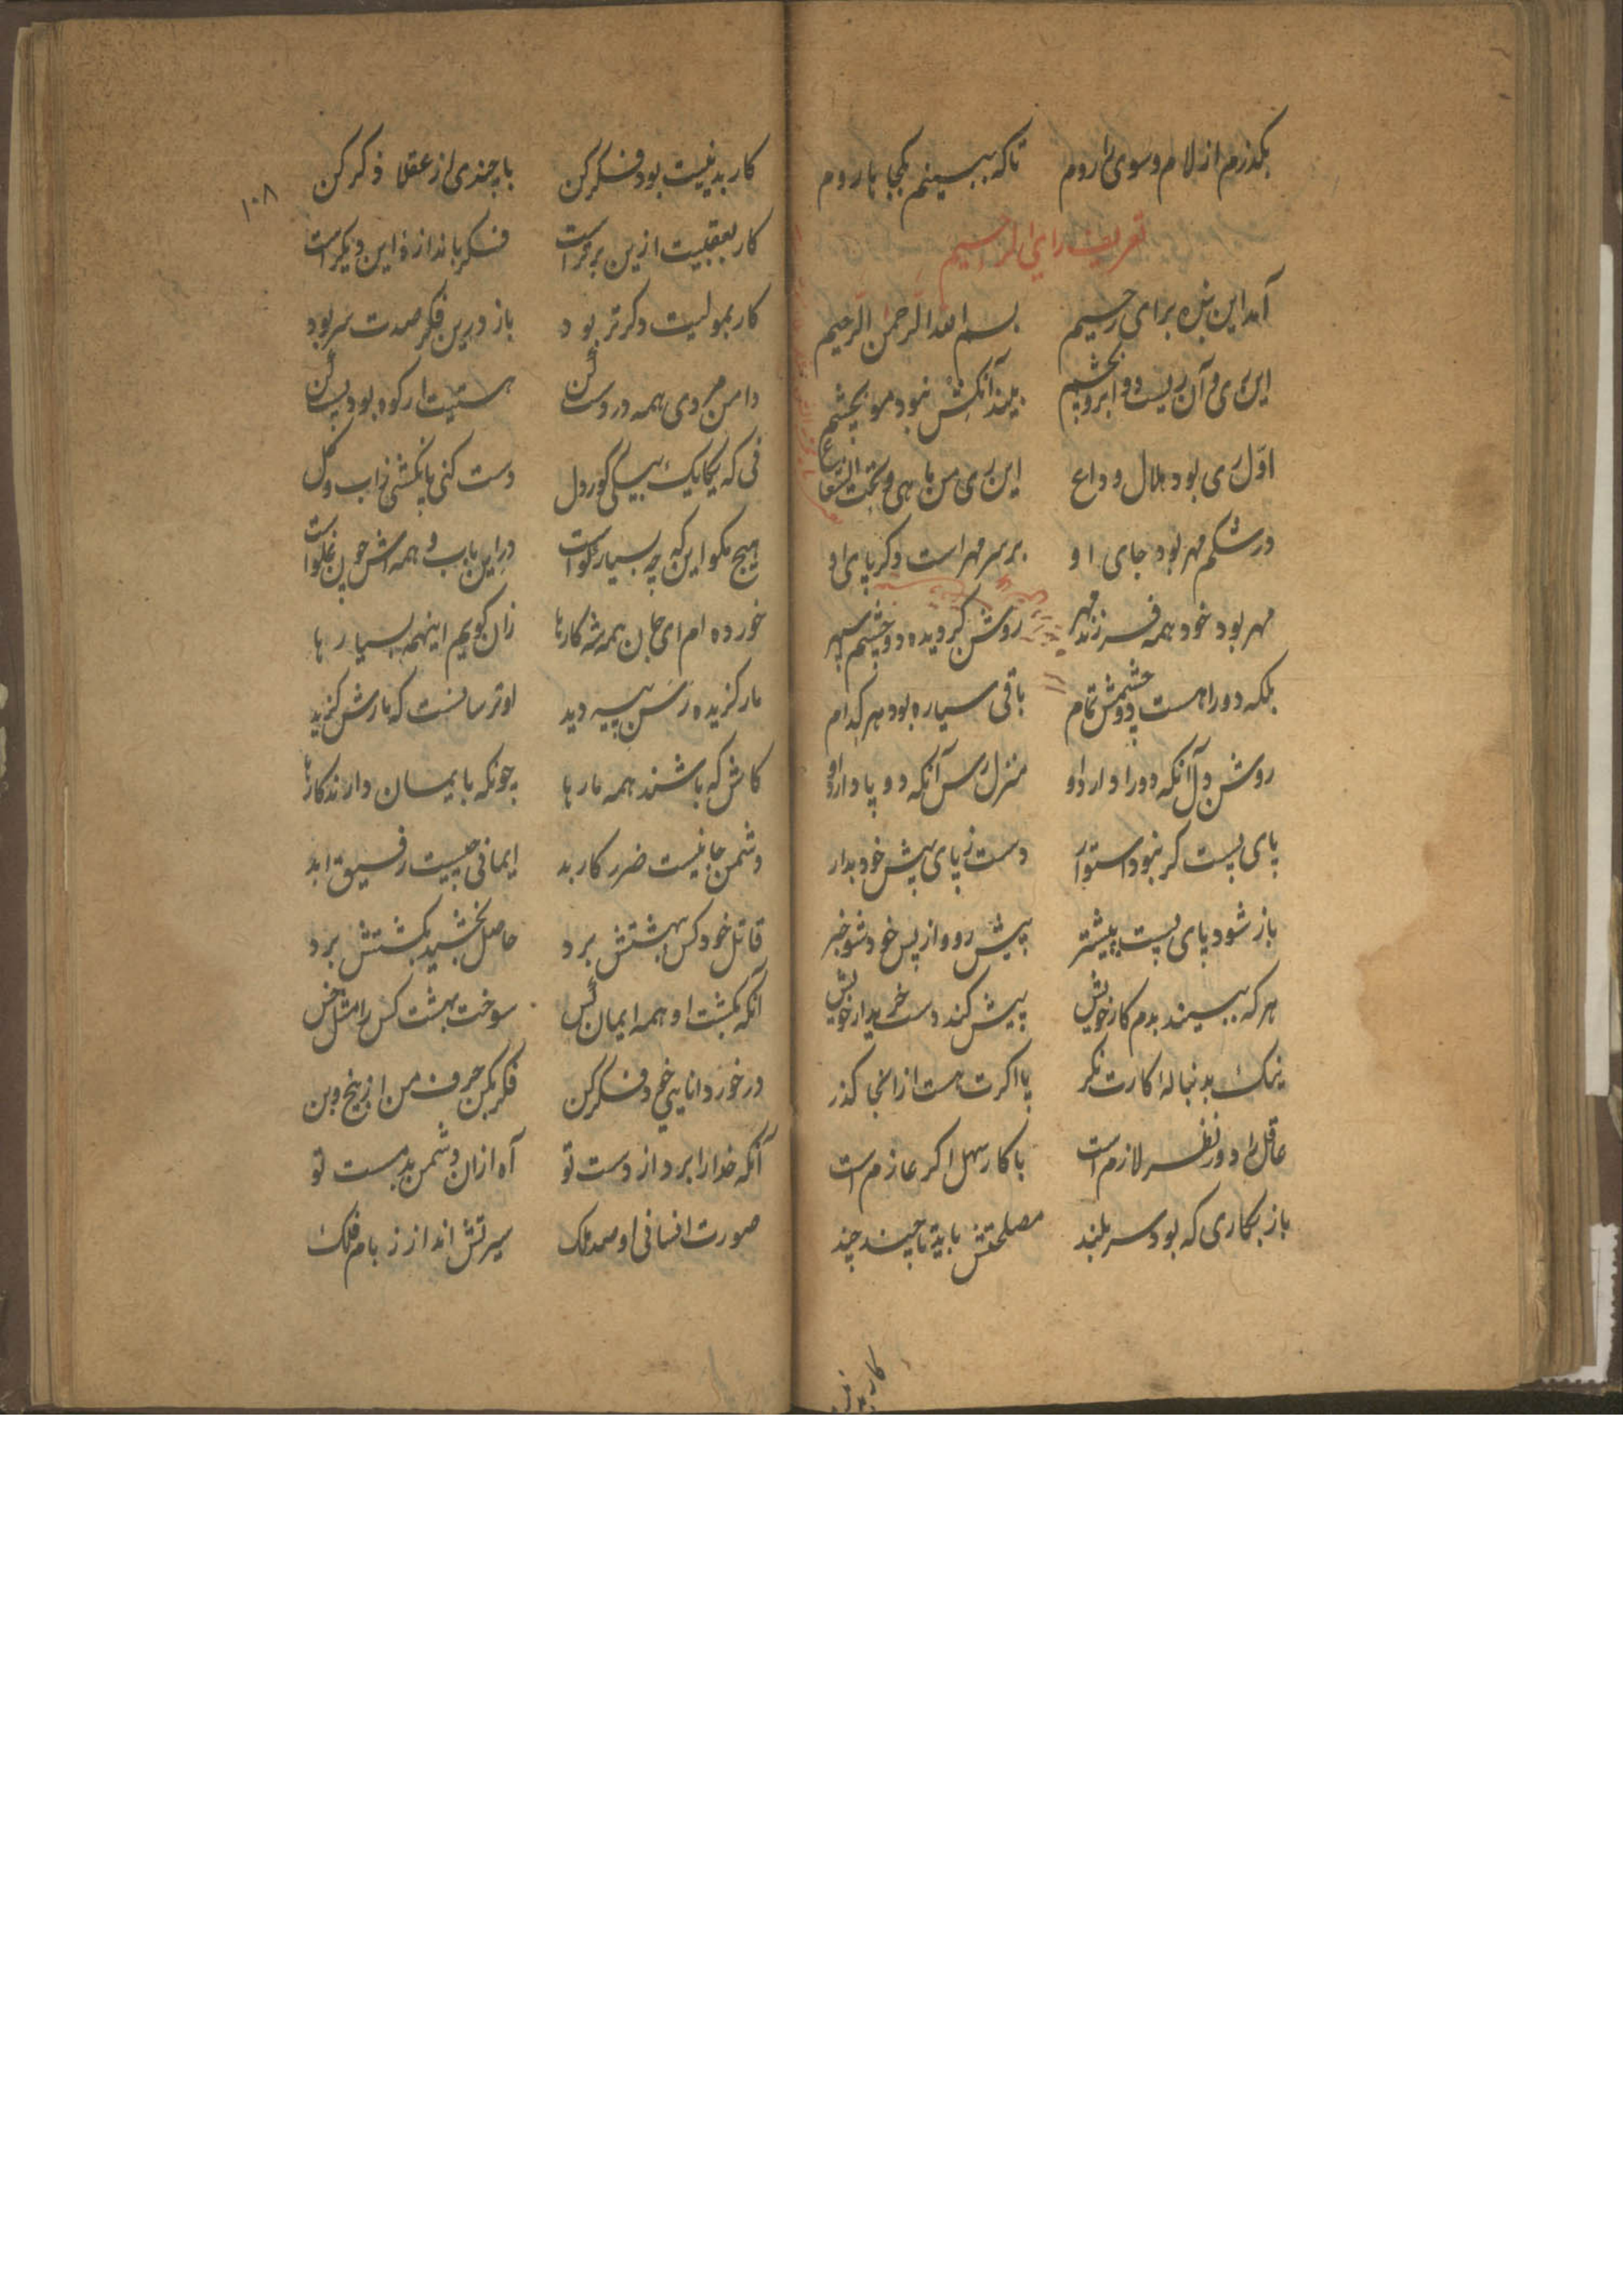 بکذرم از لام و سوی را روم تا که ببینم بکجا ها روم
تعریف رای الرحیم
آمد این بنده برای رحیم بسم الله الرحمن الرحیم
این ری و آن ریست دو ابرو بچشم بیند آنکش نبود مو بچشم
اول ری بود هلال وداع این ری من ماهی و تحت الشعاع
در شکم مهر بود جای او بر سر مهر است وکر پای او
مهر بود خود همه فرزند مهر روشن کردیده دو چشم سپهر
بلکه دو را هست دو چشمش تمام باقی سیاره بود هر کدام
روشن دل آنکه دو را دارد او منزل رس آنکه دو پا دارد او
پای پست کر نبود استوار دست ز پای پیش خود بدار
باز شود پای پست پیشتر پیش رو و از پس خود شو خبر
هر که ببیند بدم کار خویش پیش کند دست خریدار خویش
نیک بدنبالهٔ کارت نکر پا اکرت هست از انجا کذر
عاقل را دور نظر لازم است با کار سهل اکر عازم است
باز بکاری که بود سر بلند مصلحتش باید تا چند چند
کار بد
۱۰۸
کار بدنییت بود فکر کن با چندی از عقلا ذکر کن
کار بعقبیت ازین برتر است فکر باندازهٔ این دیکر است
کار بمولیت دکرتر بود باز درین فکر صدت سر بود
دامن مردی همه در دست کن هستیت ار کوه بود پست کن
فی که یکایک بیکی کور دل دست کنی پا بکشی ز آب و کل
هیچ مکو این که چه بسیار کواست در این باب و همه اش چون نکواست
خورده ام ای جان همه شه کارها زان کویم اینهمه بسیارها
مار کزیده رسن پیسه دید او ترسانست که مارش کزید
کاش که باشند همه مارها چونکه بایمان دارند کارها
دشمن جانیست ضرر کار بد ایمانی چیست رفیق ابد
قاتل خود کس بهشتش برد حاصل بخشید بکشتش برد
آنکه بکشت او همه ایمان کس سوخت بهشت کس را مثل خس
در خور دانایی خود فکر کن فکر بکن حرف من از بیخ و بن
آنکه خدا را برد از دست تو آه ازان دشمن بدمست تو
صورت انسانی او صد ملک سیرتش انداز ز بام فلک